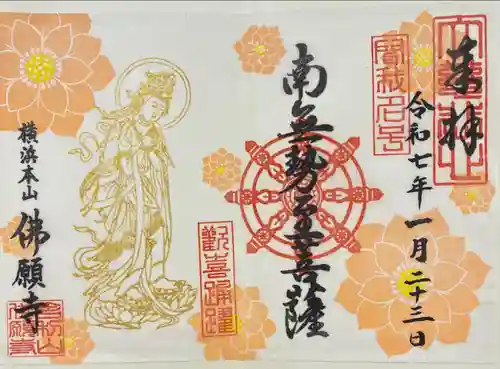 奉拝
令和七年一月二十三日
聞我名号
南無勢至菩薩
歓喜踊躍
横浜本山
佛願寺